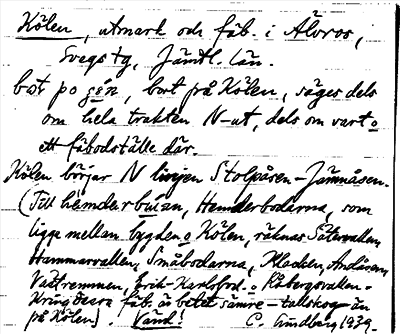 Kölen, utmark och fäb. i Älvros,
Svegs tg, Jämtl. län.
bort på Kölen, säges dels
om hela trakten N-ut, dels om vart o
ett fäbodställe där.
Kölen börjar N linjen Stolpåsen - Jämnåsen.
(Till hemderbuan, Hemderbodarna, som
ligga mellan bygden o Kölen, räknas Sätervallen,
Hammarvallen, Småbodarna, Andåsen,
Västremmen, Erik-Karlsbod. o Råbergsvallen -
Kring dessa fäb. är betet sämre - tallskog - än
på Kölen). Vänd! C. Lindberg 1939.